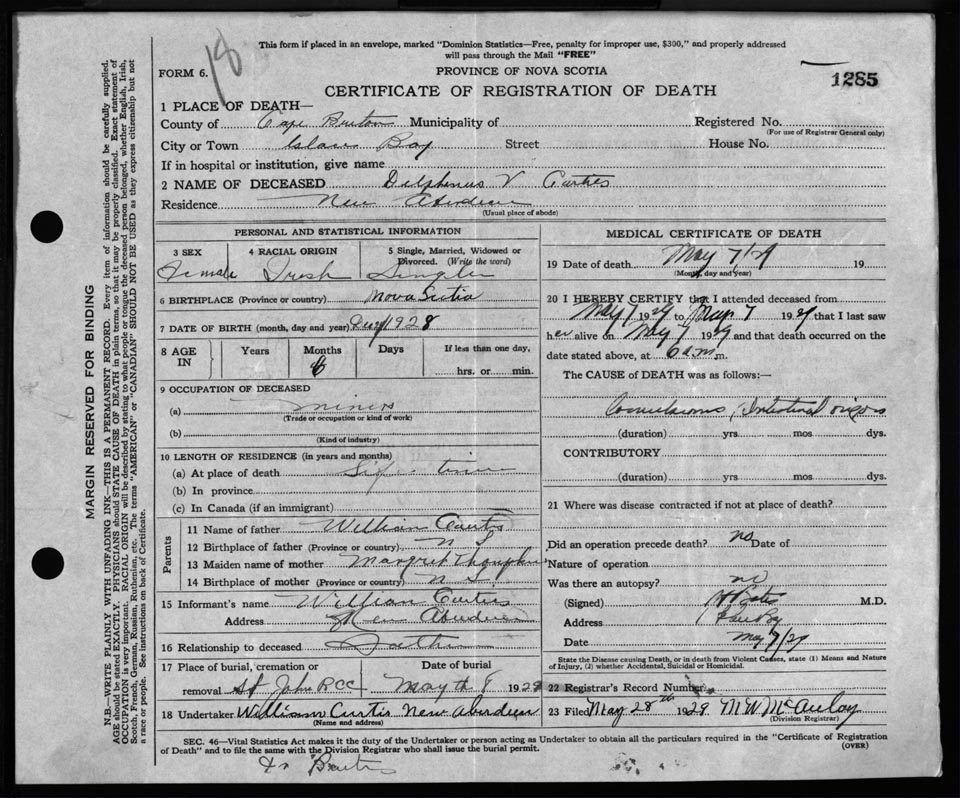 18
This form if placed in an envelope, marked "Dominion Statistics—Free, penalty for improper use, $300," and properly addressed
will pass through the Mail "FREE"
FORM 6.
PROVINCE OF NOVA SCOTIA
1285
CERTIFICATE OF REGISTRATION OF DEATH
1 PLACE OF DEATH—
County of Cape Breton Municipality of Registered No.
(For use of Registrar General only)
City or Town Glace Bay Street House No.
If in hospital or institution, give name
2 NAME OF DECEASED V Curtis
Residence New Aberdeen
(Usual place of abode)
PERSONAL AND STATISTICAL INFORMATION
3 SEX 4 RACIAL ORIGIN 5 Single, Married, Widowed or Divorced. (Write the word)
Female Irish Single
6 BIRTHPLACE (Province or country) Nova Scotia
7 DATE OF BIRTH (month, day and year) 1928
8 AGE IN Years Months Days If less than one day,
hrs. or min.
9 OCCUPATION OF DECEASED
(a)
(Trade or occupation or kind of work)
(b)
(Kind of industry)
10 LENGTH OF RESIDENCE (in years and months)
(a) At place of death Life time
(b) In province
(c) In Canada (if an immigrant)
Parents
11 Name of father William Curtis
12 Birthplace of father (Province or country) N S
13 Maiden name of mother Margret
14 Birthplace of mother (Province or country) N S
15 Informant's name William Curtis
Address New Aberdeen
16 Relationship to deceased Father
17 Place of burial, cremation or removal St John RCC
Date of burial
May th 8 1929
18 Undertaker William Curtis New Aberdeen
(Name and address)
MEDICAL CERTIFICATE OF DEATH
19 Date of death May 7/29 19
(Month, day and year)
20 I HEREBY CERTIFY that I attended deceased from
May 7 1929 to May 7 1929 that I last saw
her alive on May 7 1929 and that death occurred on the
date stated above, at 6 a.m m.
The CAUSE of DEATH was as follows:—
Convulsions, Intestinal
(duration) yrs mos dys.
CONTRIBUTORY
(duration) yrs. mos. dys.
21 Where was disease contracted if not at place of death?
Did an operation precede death? no Date of
Nature of operation
Was there an autopsy? no
(Signed) M.D.
Address
Date May 7/29
State the Disease causing Death, or in death from Violent Causes, state (1) Means and Nature
of Injury, (2) whether Accidental, Suicidal or Homicidal.
22 Registrar's Record Number
23 Filed May 28th 1929 M W McAulay
(Division Registrar)
SEC. 46—Vital Statistics Act makes it the duty of the Undertaker or person acting as Undertaker to obtain all the particulars required in the "Certificate of Registration
of Death" and to file the same with the Division Registrar who shall issue the burial permit.
(OVER)
Dr
MARGIN RESERVED FOR BINDING
N.B.—WRITE PLAINLY WITH UNFADING INK—THIS IS A PERMANENT RECORD. Every item of information should be carefully supplied.
AGE should be stated EXACTLY. PHYSICIANS should STATE CAUSE OF DEATH in plain terms, so that it may be properly classified. Exact statement of
OCCUPATION is very important. RACIAL ORIGIN will be described by stating to what people or tongue the deceased person belonged, whether English, Irish,
Scotch, French, German, Russian, Ruthenian, etc. The terms "AMERICAN" or "CANADIAN" SHOULD NOT BE USED as they express citizenship but not
a race or people. See instructions on back of Certificate.